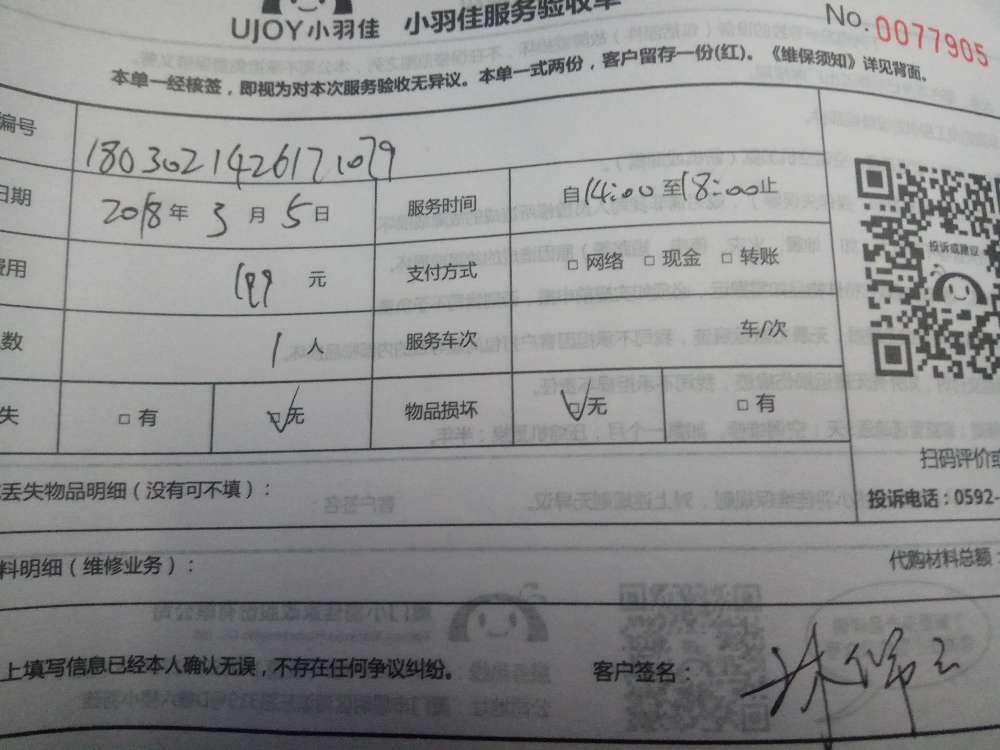 UJOY小羽佳 小羽佳服务验收单
No. 0077905
本单一经核签，即视为对本次服务验收无异议。本单一式两份，客户留存一份(红)。《维保须知》详见背面。
编号 1803021426171079
日期 2018年 3月 5日 服务时间 自14:00至18:00止
费用 199 元 支付方式 □网络 □现金 □转账
数 1人 服务车次 车/次
失 □有 ☑无 物品损坏 ☑无 □有
投诉或建议
扫码评价或
丢失物品明细（没有可不填）：
投诉电话：0592-
料明细（维修业务）：
代购材料总额：
上填写信息已经本人确认无误，不存在任何争议纠纷。
客户签名：